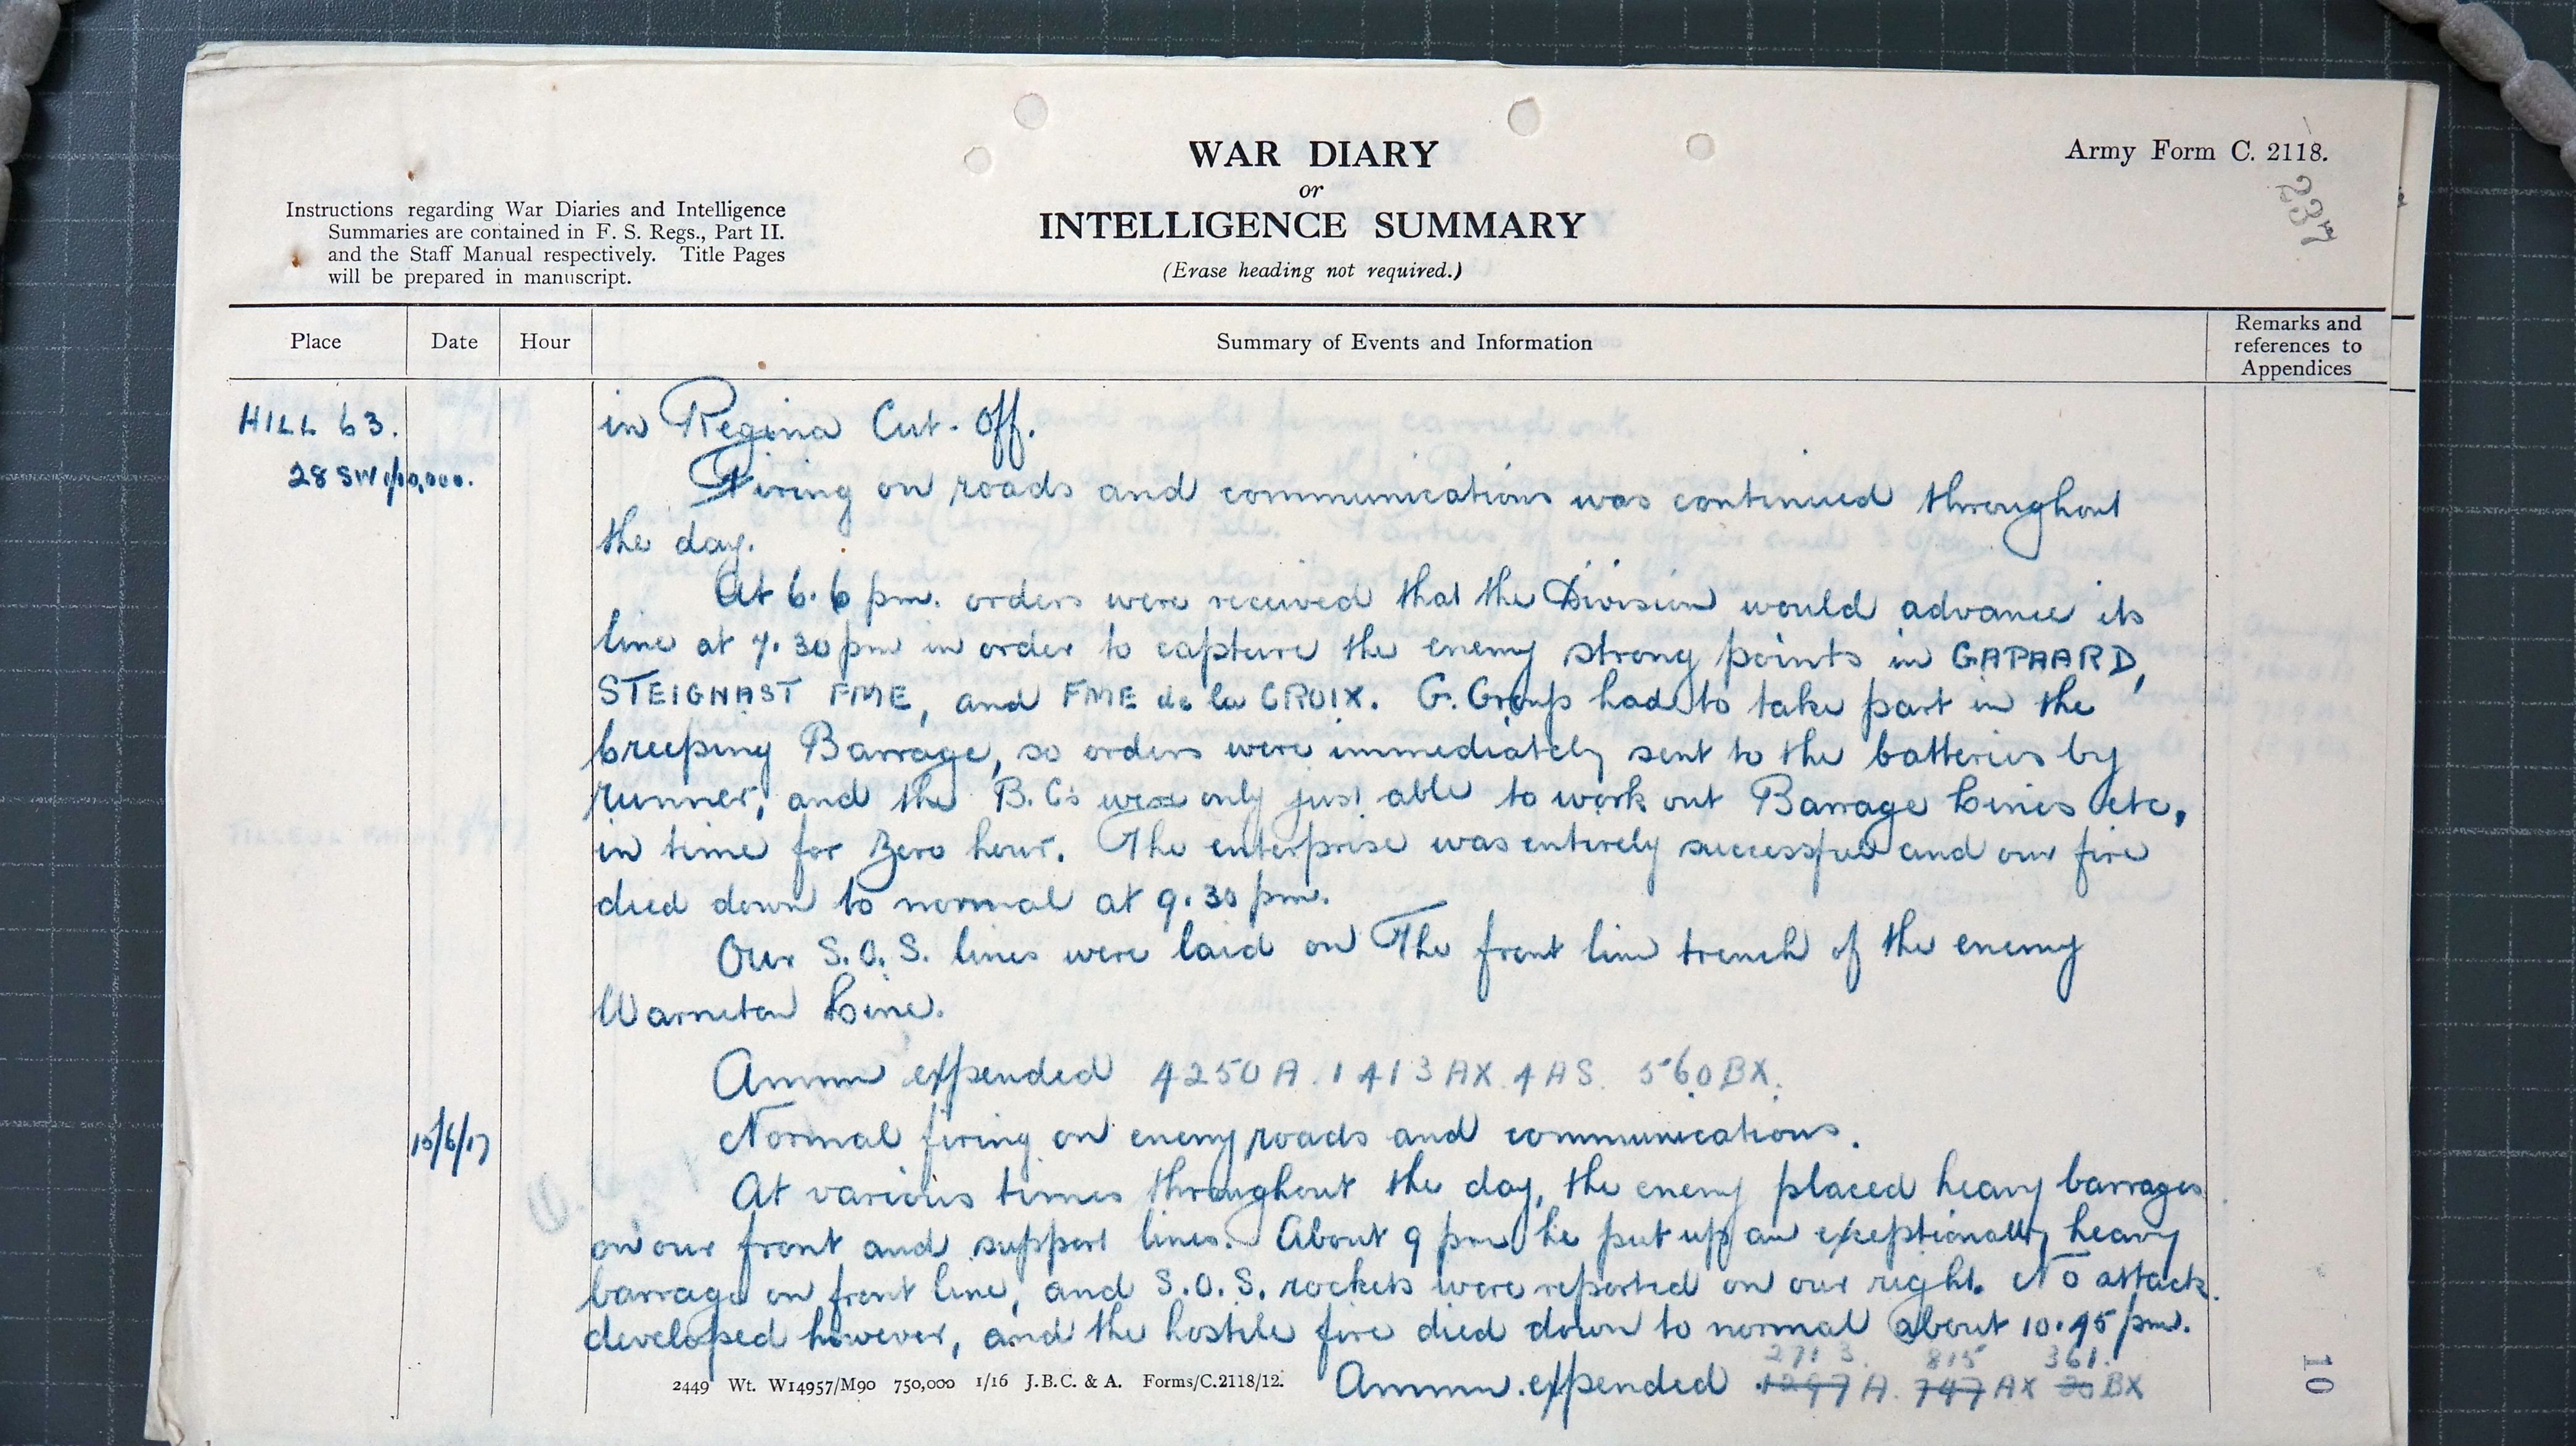 WAR DIARY
or
INTELLIGENCE SUMMARY
(Erase heading not required.)
Army Form C. 2118.
237
Instructions regarding War Diaries and Intelligence
Summaries are contained in F. S. Regs., Part II.
and the Staff Manual respectively. Title Pages
will be prepared in manuscript.
Place
Date
Hour
Summary of Events and Information
Remarks and
references to
Appendices
HILL 63.
28 SW 1/10,000.
in Regina Cut-Off.
Firing on roads and communications was continued throughout
the day.
At 6.6 pm. orders were received that the Division would advance its
line at 7.30 pm in order to capture the enemy strong points in GAPAARD,
STEIGNAST FME, and FME de la CROIX. G. Group had to take part in the
Creeping Barrage, so orders were immediately sent to the batteries by
runner, and the B.Cs were only just able to work out Barrage Lines etc,
in time for Zero hour. The enterprise was entirely successful and our fire
died down to normal at 9.30 pm.
Our S.O.S. lines were laid on The front line trench of the enemy
Warneton Line.
Ammn expended 4250 A. 1413 AX. 4 AS. 560 BX.
15/6/17
Normal firing on enemy roads and communications.
At various times throughout the day, the enemy placed heavy barrages
on our front and support lines. About 9 pm he put up an exceptionally heavy
barrage on front line, and S.O.S. rockets were reported on our right. No attack
developed however, and the hostile fire died down to normal about 10.45 pm.
2713. 815 361.
Ammn. expended 1297 A. 747 AX 20 BX
2449 Wt. W14957/M90 750,000 1/16 J.B.C. & A. Forms/C.2118/12.
10